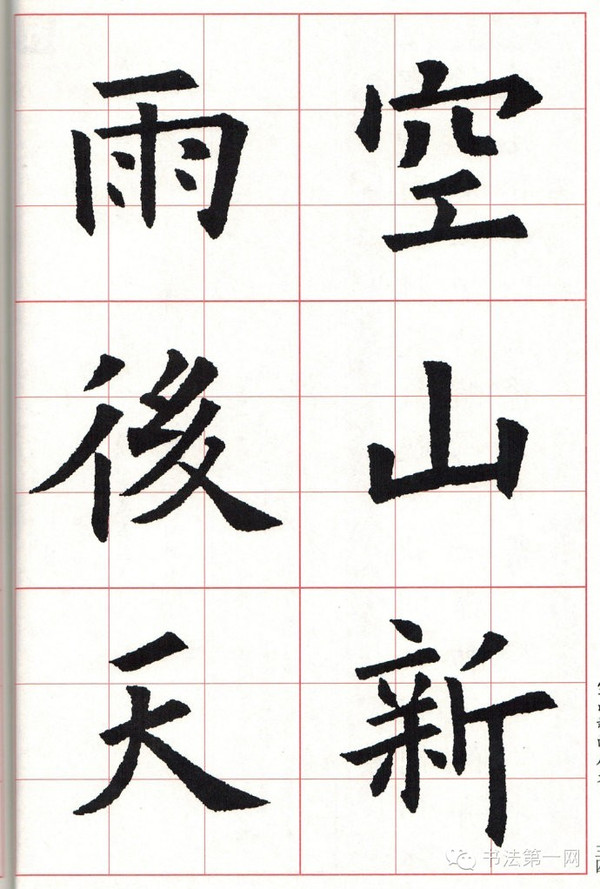 空山新
雨後天
书法第一网